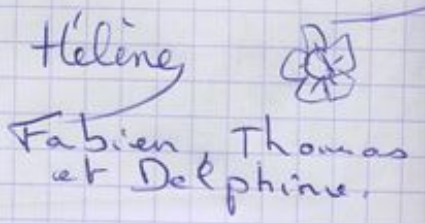 Hélène,
Fabien, Thomas
et Delphine.